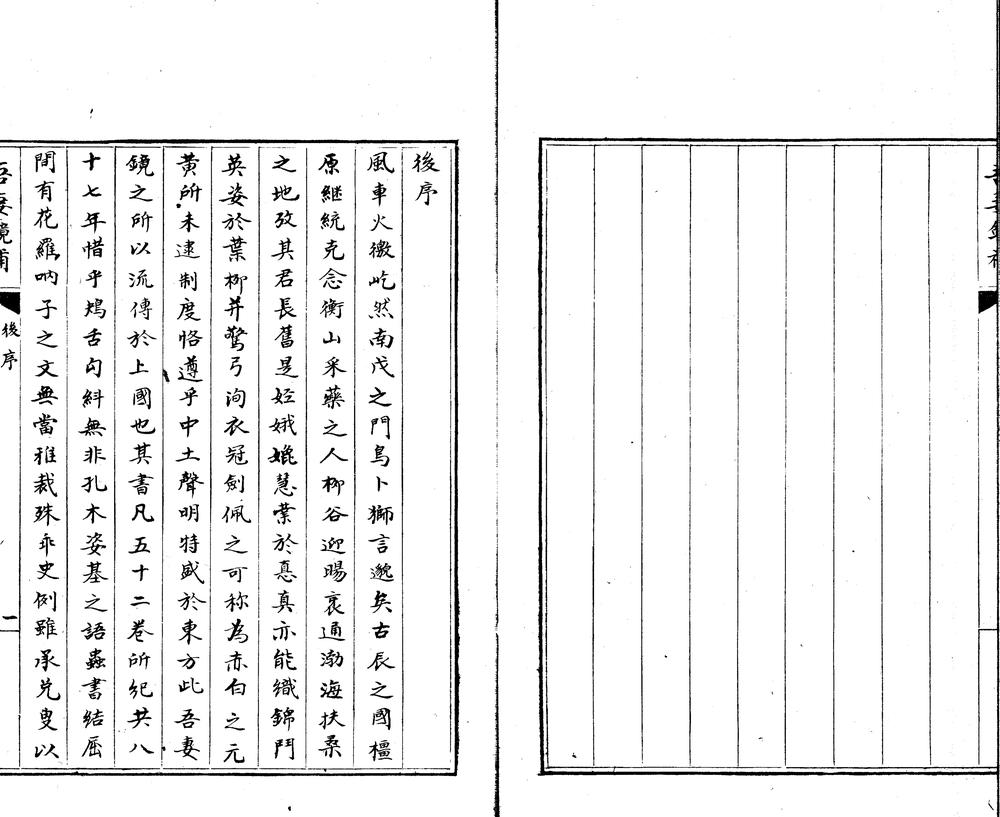 吾妻鏡補
後序
風車火徼屹然南戊之門烏卜獅言邈矣古辰之國橿
原継統克念衡山采藥之人柳谷迎暘裒通渤海扶桑
之地攷其君長舊是姪娥嬔慧業於惪真亦能織錦鬥
英姿於葉柳并驚弓洵衣冠劍佩之可称為赤白之元
黄所未逮制度恪遵乎中土聲明特盛於東方此吾妻
鏡之所以流傳於上國也其書凡五十二卷所紀共八
十七年惜乎鴂舌勾斜無非孔木姿基之語蟲書結屈
間有花羅吶子之文無當雅裁殊乖史例雖承兑叟以
吾妻鏡補
後序
一